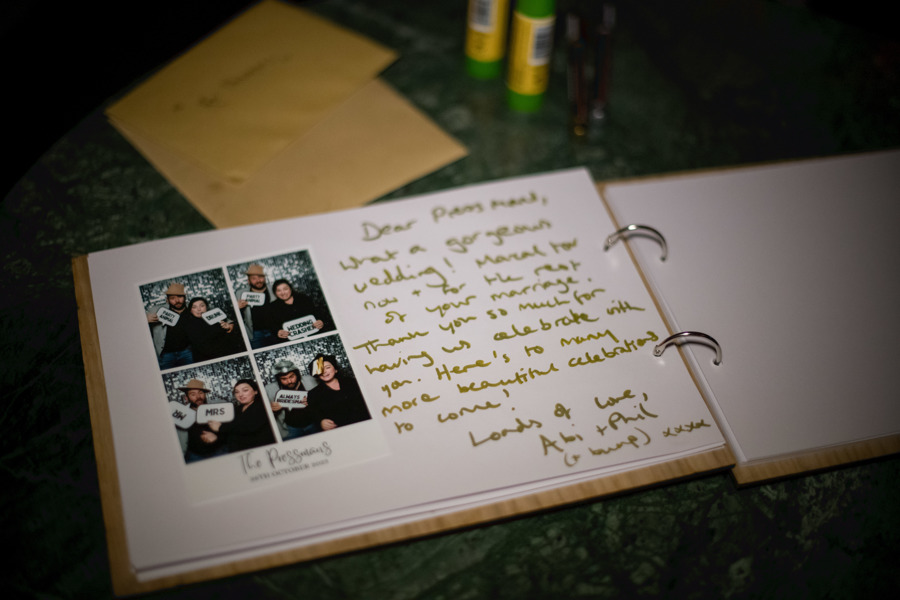 Dear Pressmans,
What a gorgeous
wedding! Mazal tov
now + for the rest
of your marriage.
Thank you so much for
having us celebrate with
you. Here's to many
more beautiful celebrations
to come!
Loads of love,
Abi + Phil
(+ bump) xxxxx
PARTY ANIMAL
DRUNK
PARTY
WEDDING CRASHER
MR
MRS
ALWAYS A BRIDESMAID
The Pressmans
OCTOBER